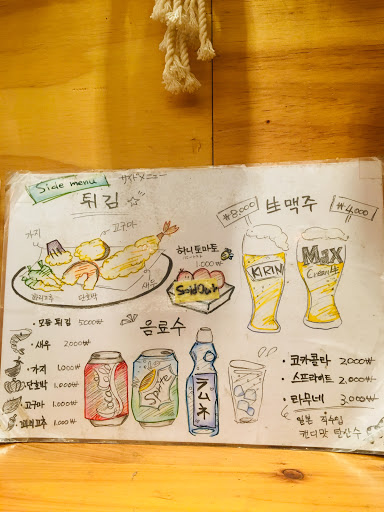 Side menu
サイドメニュー
튀김
가지
고구마
꽈리고추
단호박
새우
하니토마토
1.000₩
Sold Out
₩8,000
生맥주
₩4,000
KIRIN
Max
Cream生
모듬 튀김 5000₩
새우 2.000₩
가지 1.000₩
단호박 1.000₩
고구마 1.000₩
꽈리고추 1.000₩
음료수
Coca
Sprite
ラムネ
· 코카콜라 2,000₩
· 스프라이트 2,000₩
· 라무네 3,000₩
일본 직수입
캔디맛 탄산수